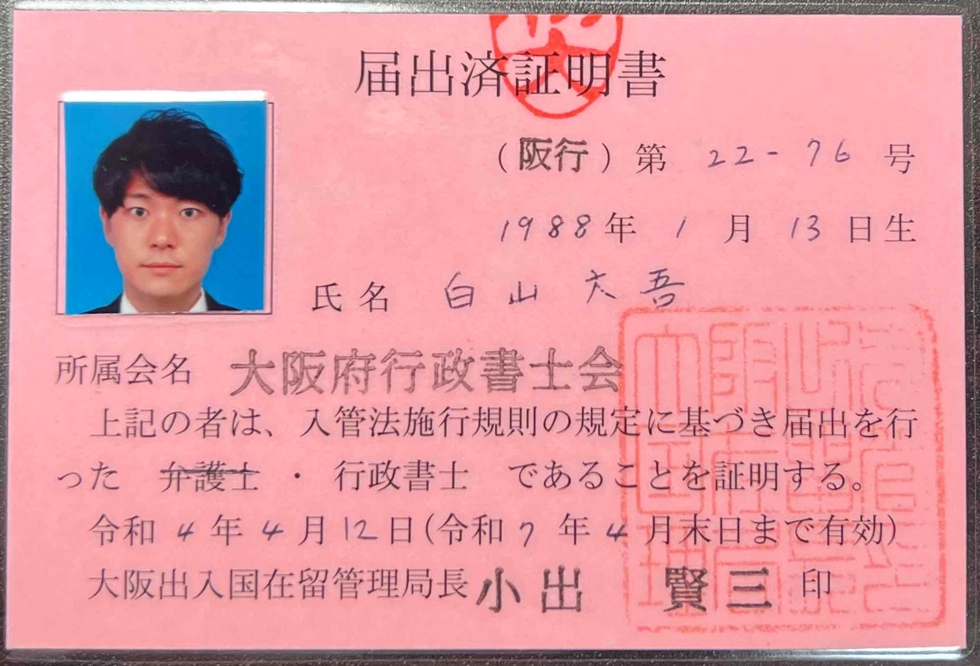 届出済証明書
(阪行)第 22-76 号
1988年 1 月 13 日生
氏名 白山大吾
所属会名 大阪府行政書士会
上記の者は、入管法施行規則の規定に基づき届出を行
った 弁護士 ・ 行政書士 であることを証明する。
令和 4 年 4 月 12 日(令和 7 年 4 月末日まで有効)
大阪出入国在留管理局長 小出 賢三 印